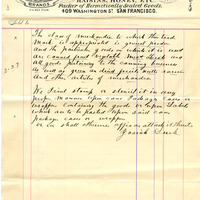 RAISINS, HONEY, &c.
Packer of Hermetically Sealed Goods.
409 WASHINGTON ST. SAN FRANCISCO.
BRANDS
The class of merchandise to which this trade
Mark is appropriated is ground product
And the particular goods on which it is used
Are canned fruit vegetable Meat Fish and
All goods pertaining to the canning business
As well as green or dried fruits nuts raisins
And other articles of merchandise
We print stamp or stencil it in any
proper Manner upon cans Package cases or
wrapper containing the goods or upon Labels
which are to be pasted upon said cans
package cases or wrapper
or in such other